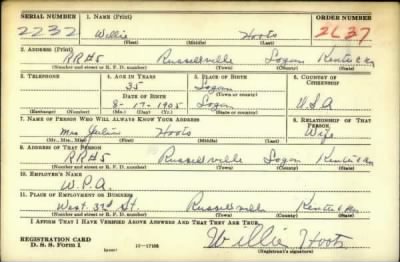 SERIAL NUMBER 1. NAME (Print) ORDER NUMBER
2232 Willie Hoots 2637
(First) (Middle) (Last)
2. ADDRESS (Print)
RR#5 Russellville Logan Kentucky
(Number and street or R. F. D. number) (Town) (County) (State)
3. TELEPHONE 4. AGE IN YEARS 5. PLACE OF BIRTH 6. COUNTRY OF CITIZENSHIP
35 Logan
DATE OF BIRTH (Town or county)
8-17-1905 Logan U.S.A
(Exchange) (Number) (Mo.) (Day) (Yr.) (State or country)
7. NAME OF PERSON WHO WILL ALWAYS KNOW YOUR ADDRESS 8. RELATIONSHIP OF THAT PERSON
Mrs Hoots Wife
(Mr., Mrs., Miss) (First) (Middle) (Last)
9. ADDRESS OF THAT PERSON
RR#5 Russellville Logan Kentucky
(Number and street or R. F. D. number) (Town) (County) (State)
10. EMPLOYER'S NAME
W.P.A.
11. PLACE OF EMPLOYMENT OR BUSINESS
West 3rd St. Russellville Kentucky
(Number and street or R. F. D. number) (Town) (County) (State)
I AFFIRM THAT I HAVE VERIFIED ABOVE ANSWERS AND THAT THEY ARE TRUE.
REGISTRATION CARD
D. S. S. FORM 1 (over) Willie Hoots
(Registrant's signature)